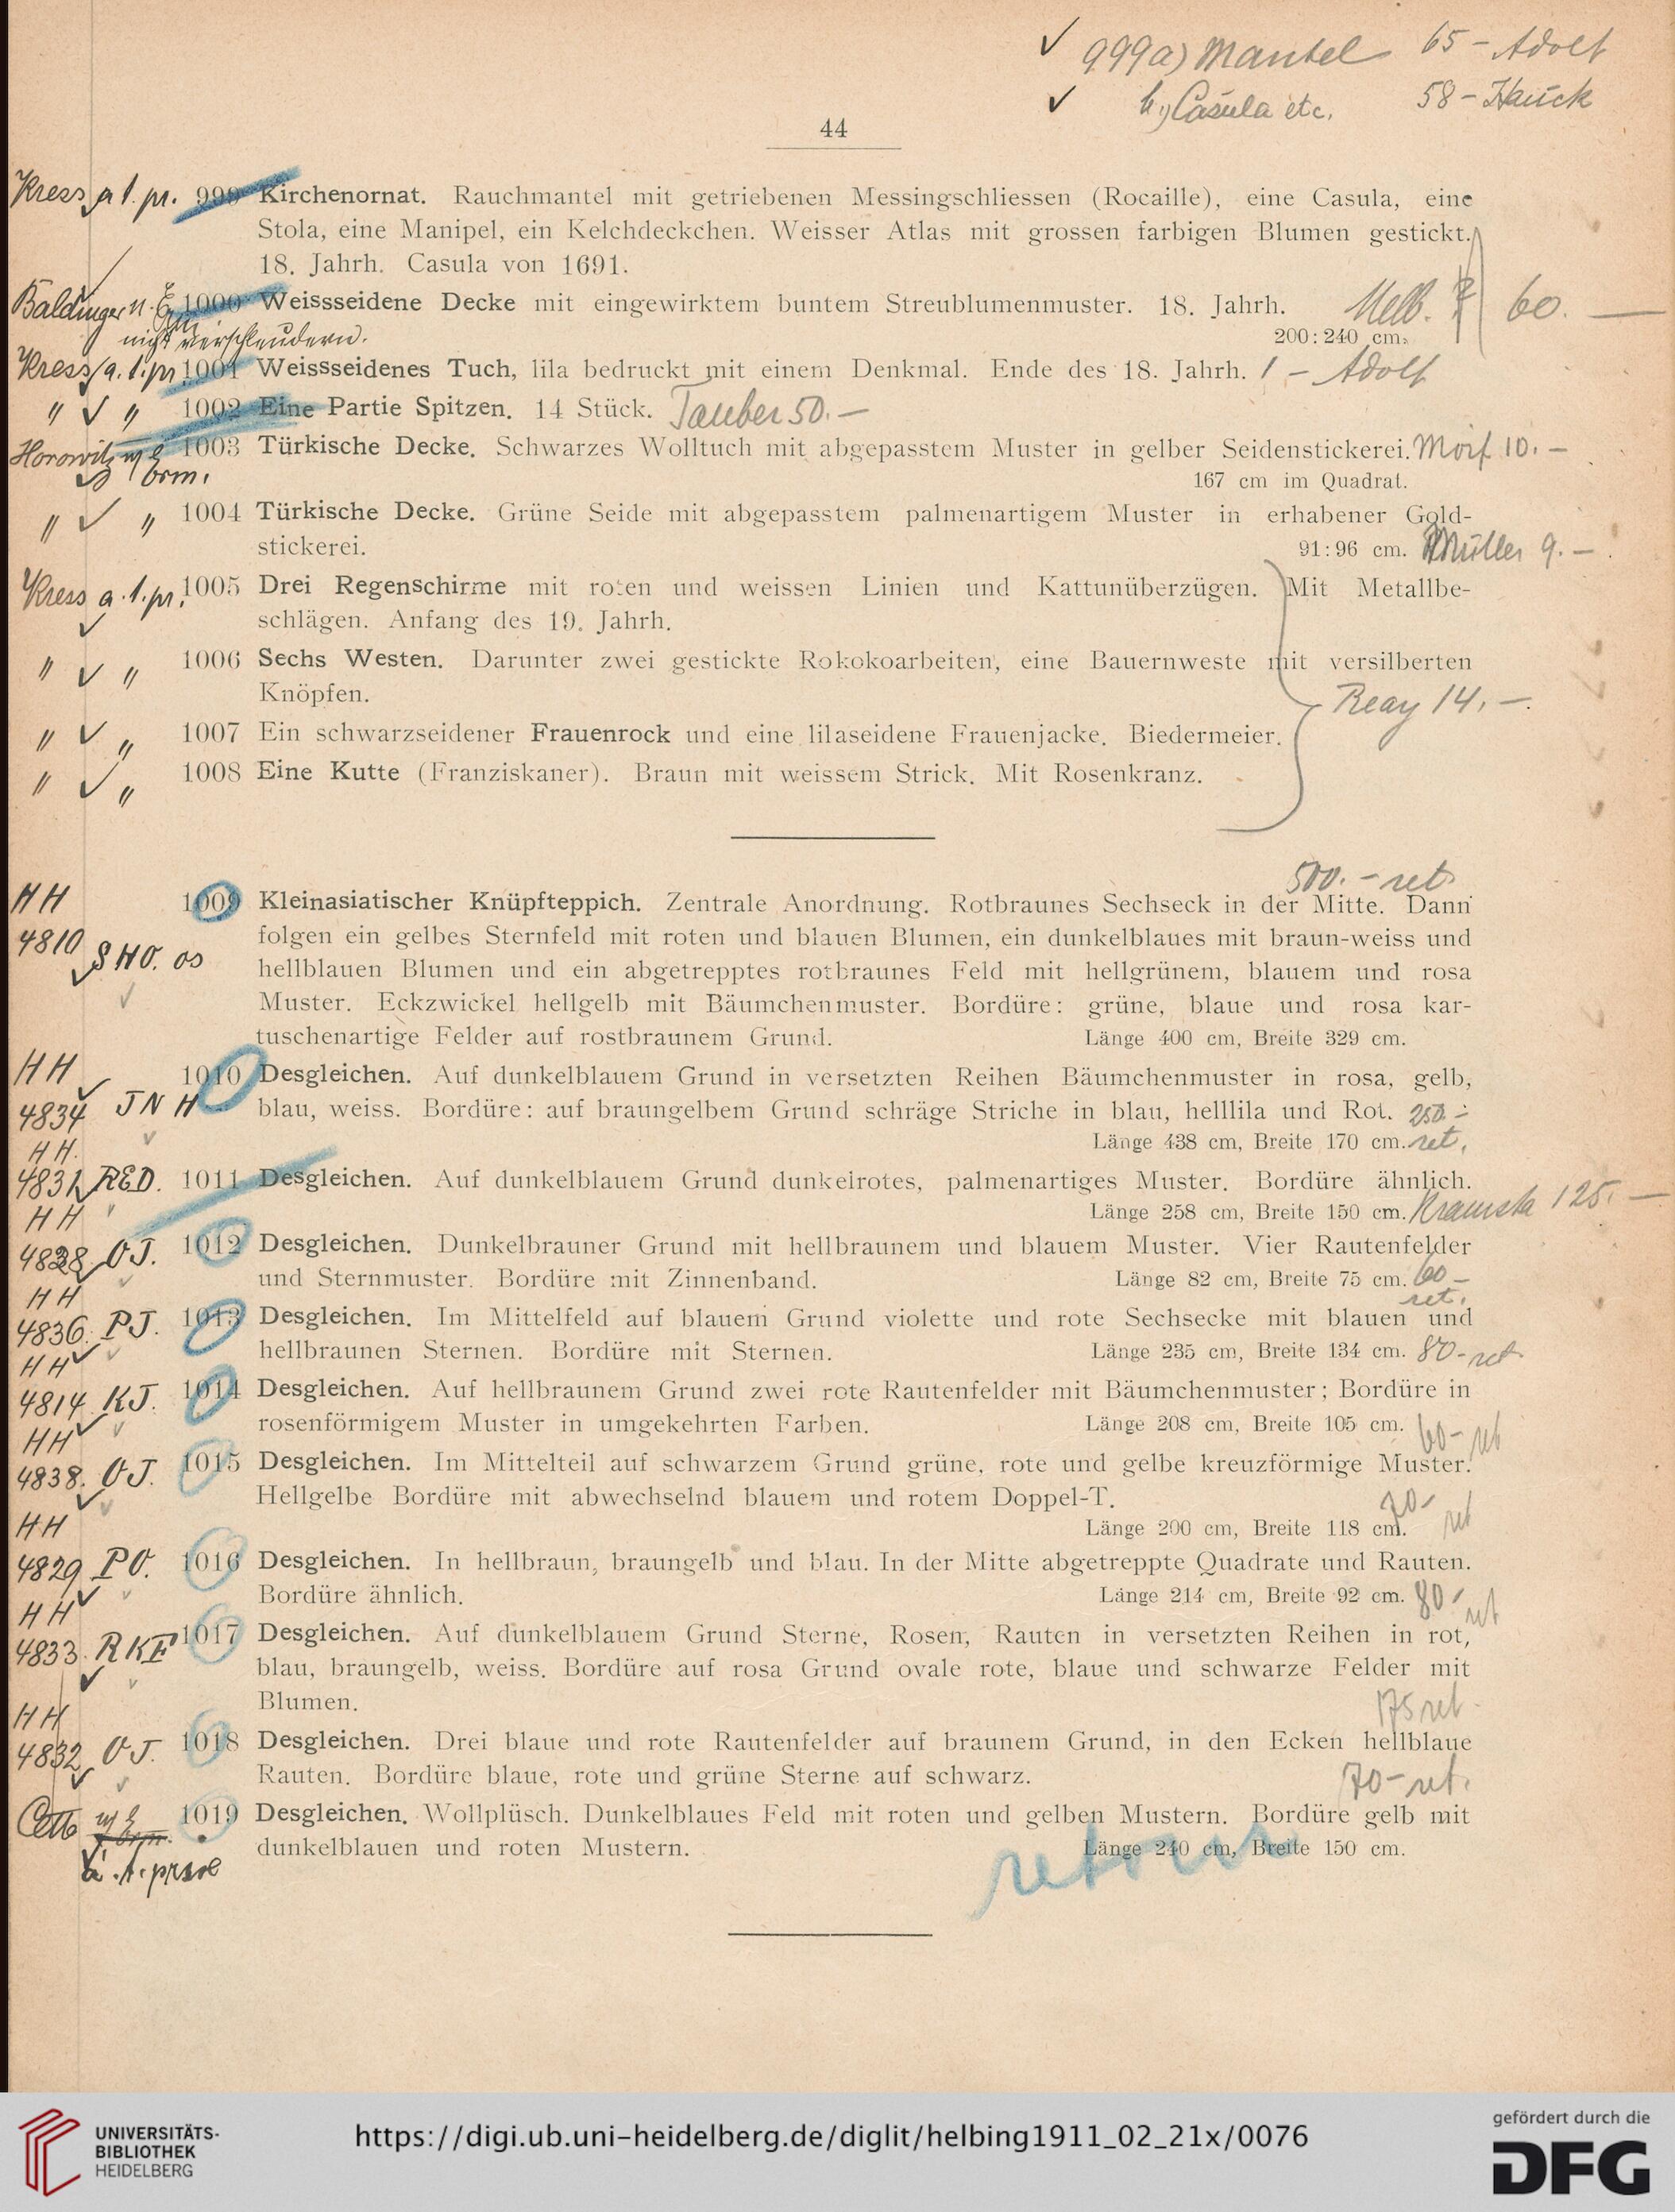 ✓ 999a) Mantel 65 - Adolf
✓ b.) Casula etc. 58 - Hauck
44
Kress a l. pr. 999 Kirchenornat. Rauchmantel mit getriebenen Messingschliessen (Rocaille), eine Casula, eine
Stola, eine Manipel, ein Kelchdeckchen. Weisser Atlas mit grossen farbigen Blumen gestickt.
18. Jahrh. Casula von 1691.
Baldinger 1000 Weissseidene Decke mit eingewirktem buntem Streublumenmuster. 18. Jahrh. 60. —
nicht verschleudern. 200:240 cm.
Kress a. l. pr 1001 Weissseidenes Tuch, lila bedruckt mit einem Denkmal. Ende des 18. Jahrh. 1 - Adolf
" ✓ " 1002 Eine Partie Spitzen. 14 Stück. Tauber 50.—
Horowitz 1003 Türkische Decke. Schwarzes Wolltuch mit abgepasstem Muster in gelber Seidenstickerei. Morf 10. —
167 cm im Quadrat.
" ✓ " 1004 Türkische Decke. Grüne Seide mit abgepasstem palmenartigem Muster in erhabener Gold-
stickerei. 91:96 cm. Müller 9. —
Kress a. l. pr. 1005 Drei Regenschirme mit roten und weissen Linien und Kattunüberzügen. Mit Metallbe-
✓ schlägen. Anfang des 19. Jahrh.
" ✓ " 1006 Sechs Westen. Darunter zwei gestickte Rokokoarbeiten, eine Bauernweste mit versilberten
Knöpfen. Reay 14. —.
" ✓ " 1007 Ein schwarzseidener Frauenrock und eine lilaseidene Frauenjacke. Biedermeier.
" ✓ " 1008 Eine Kutte (Franziskaner). Braun mit weissem Strick. Mit Rosenkranz.
500. - ret.
HH 1009 Kleinasiatischer Knüpfteppich. Zentrale Anordnung. Rotbraunes Sechseck in der Mitte. Dann
4810 SHO. OS folgen ein gelbes Sternfeld mit roten und blauen Blumen, ein dunkelblaues mit braun-weiss und
hellblauen Blumen und ein abgetrepptes rotbraunes Feld mit hellgrünem, blauem und rosa
Muster. Eckzwickel hellgelb mit Bäumchenmuster. Bordüre: grüne, blaue und rosa kar-
tuschenartige Felder auf rostbraunem Grund. Länge 400 cm, Breite 329 cm.
HH 1010 Desgleichen. Auf dunkelblauem Grund in versetzten Reihen Bäumchenmuster in rosa, gelb,
4834 JNH blau, weiss. Bordüre: auf braungelbem Grund schräge Striche in blau, helllila und Rot. 250 -
HH. Länge 438 cm, Breite 170 cm. ret.
4831 RED. 1011 Desgleichen. Auf dunkelblauem Grund dunkelrotes, palmenartiges Muster. Bordüre ähnlich.
HH Länge 258 cm, Breite 150 cm. Kramsta 125. —
4828 OJ. 1012 Desgleichen. Dunkelbrauner Grund mit hellbraunem und blauem Muster. Vier Rautenfelder
HH und Sternmuster. Bordüre mit Zinnenband. Länge 82 cm, Breite 75 cm. 60 — ret.
4836. PJ. 1013 Desgleichen. Im Mittelfeld auf blauem Grund violette und rote Sechsecke mit blauen und
HH hellbraunen Sternen. Bordüre mit Sternen. Länge 235 cm, Breite 134 cm. 80 - ret
4814. KJ. 1014 Desgleichen. Auf hellbraunem Grund zwei rote Rautenfelder mit Bäumchenmuster; Bordüre in
HH rosenförmigem Muster in umgekehrten Farben. Länge 208 cm, Breite 105 cm. 60 - ret
4838. OJ. 1015 Desgleichen. Im Mittelteil auf schwarzem Grund grüne, rote und gelbe kreuzförmige Muster.
Hellgelbe Bordüre mit abwechselnd blauem und rotem Doppel-T.
HH Länge 200 cm, Breite 118 cm. 70 - ret
4829 PO. 1016 Desgleichen. In hellbraun, braungelb und blau. In der Mitte abgetreppte Quadrate und Rauten.
HH Bordüre ähnlich. Länge 214 cm, Breite 92 cm. 80 - ret
4833. RKF 1017 Desgleichen. Auf dunkelblauem Grund Sterne, Rosen, Rauten in versetzten Reihen in rot,
blau, braungelb, weiss. Bordüre auf rosa Grund ovale rote, blaue und schwarze Felder mit
HH Blumen. 175 ret
4832 OJ. 1018 Desgleichen. Drei blaue und rote Rautenfelder auf braunem Grund, in den Ecken hellblaue
Rauten. Bordüre blaue, rote und grüne Sterne auf schwarz. 70 - ret.
1019 Desgleichen. Wollplüsch. Dunkelblaues Feld mit roten und gelben Mustern. Bordüre gelb mit
dunkelblauen und roten Mustern. Länge 240 cm, Breite 150 cm.
retour
UNIVERSITÄTS-
BIBLIOTHEK
HEIDELBERG
https://digi.ub.uni-heidelberg.de/diglit/helbing1911_02_21x/0076
gefördert durch die
DFG